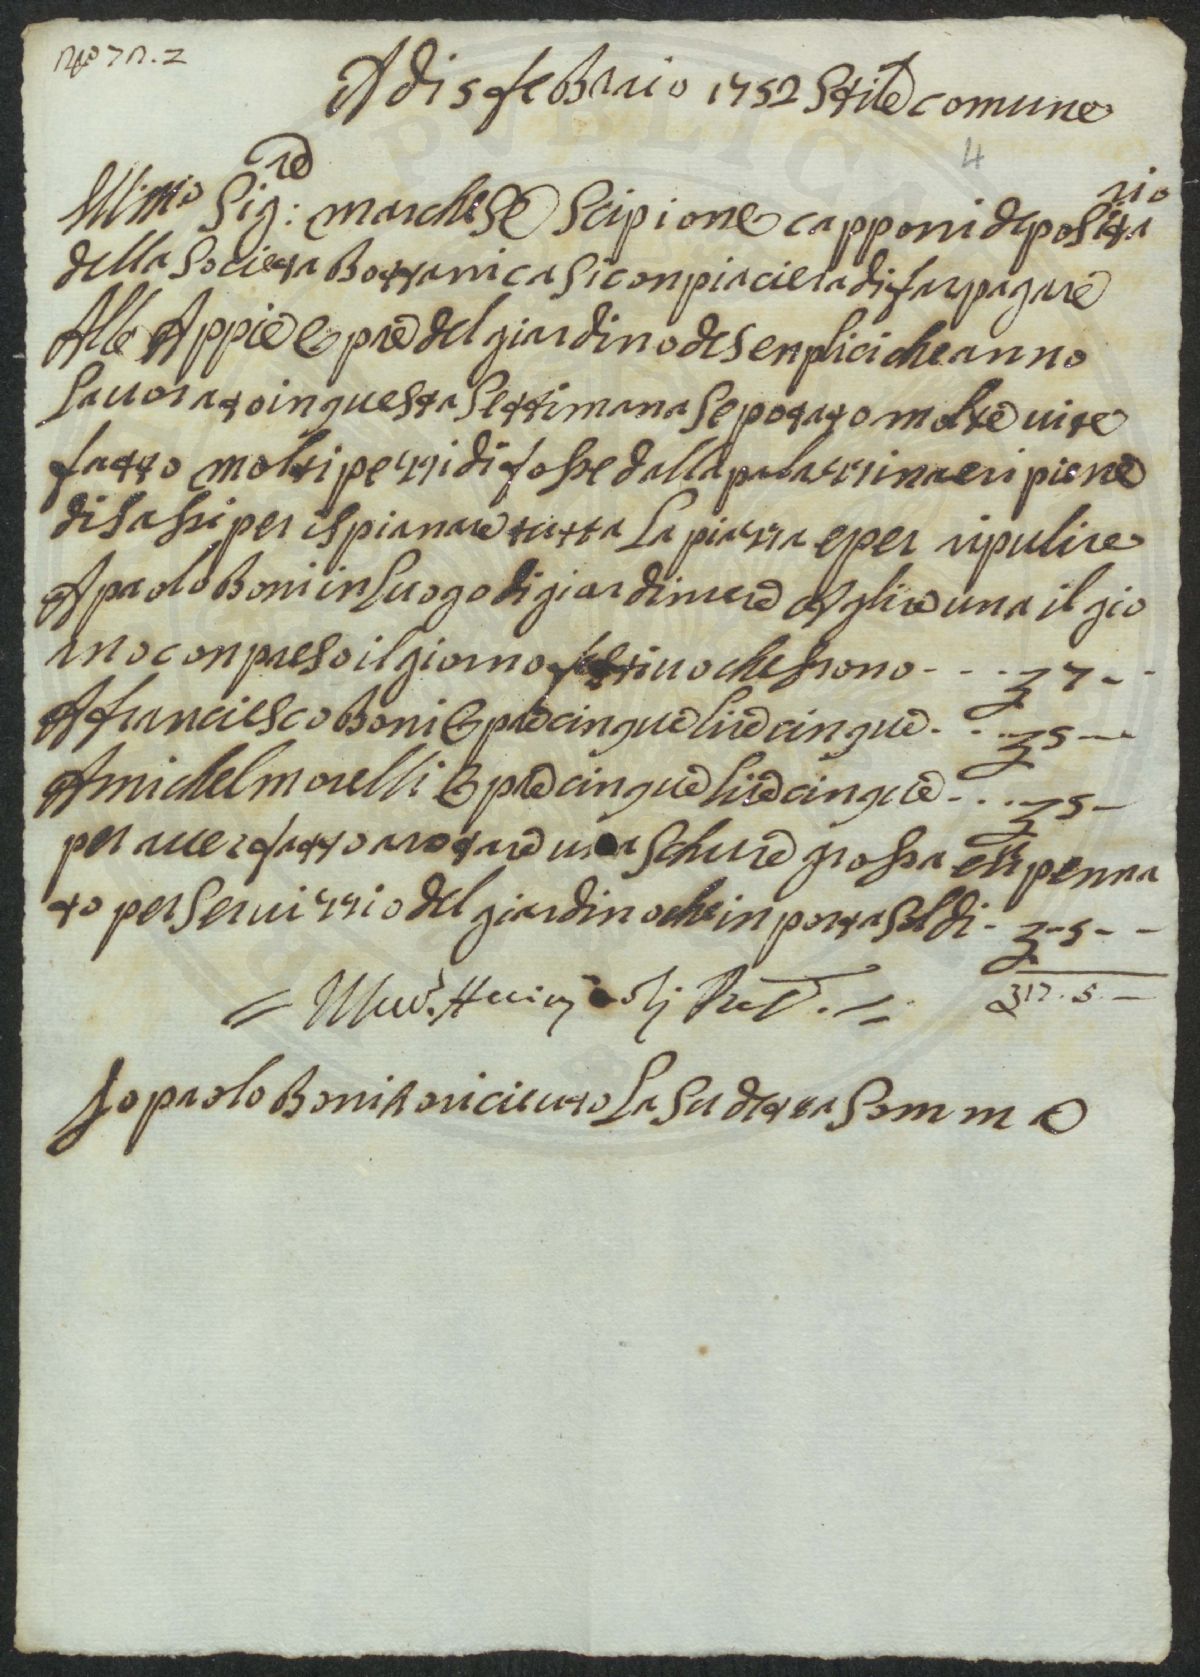 A di 5 feBraio 1752 Stile comune
4
Ill:mo Sig:re marchese Scipione capponi deposita
rio
della Societa Bottanica Si conpiaciera di far pagare
Alle Appiè Opre del giardino de Senplici che anno
Lauorato in questa Settimana Se potato molte uite
fatto molti pezzi di fosse dalla palazzina e ripiene
di sassi per ispianare tutta La piazza e per ripulire
A paolo Boni in Luogo di giardiniere una il gio
rno conpreso il giorno festiuo che sono - - - 7 - -
A franciesco Boni Opre cinque lire cinque - - - 5 -
A michel morelli Opre cinque lire cinque - - - 5 -
per auer fatto arotare una Schure grossa e un penna
to per Seruizzio del giardino che inporta Soldi - - 5 - -
17 . 5 . -
Io paolo Boni o ricieuto La Su detta Somma